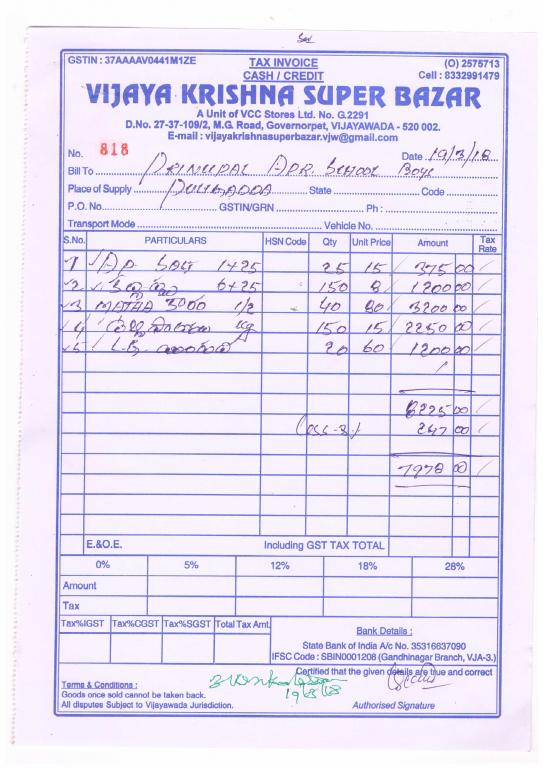 GSTIN : 37AAAAV0441M1ZE TAX INVOICE (O) 2575713
CASH / CREDIT Cell : 8332991479
VIJAYA KRISHNA SUPER BAZAR
A Unit of VCC Stores Ltd. No. G.2291
D.No. 27-37-109/2, M.G. Road, Governorpet, VIJAYAWADA - 520 002.
E-mail : vijayakrishnasuperbazar.vjw@gmail.com
No. 818 Date 19/3/18
Bill To Principal APR. School Boys
Place of Supply State Code
P.O. No. GSTIN/GRN Ph :
Transport Mode Vehicle No.
S.No. PARTICULARS HSN Code Qty Unit Price Amount Tax Rate
1 Salt 1+25 25 15 375 00
2 6+25 150 8 1200 00
3 3000 1/2 40 80 3200 00
4 Kg 150 15 2250 00
5 L.B. 20 60 1200 00
8225 00
Less-3% 247 00
7978 00
E.&O.E. Including GST TAX TOTAL
0% 5% 12% 18% 28%
Amount
Tax
Tax%IGST Tax%CGST Tax%SGST Total Tax Amt.
Bank Details :
State Bank of India A/c No. 35316637090
IFSC Code : SBIN0001208 (Gandhinagar Branch, VJA-3.)
Certified that the given details are true and correct
Terms & Conditions :
Goods once sold cannot be taken back.
All disputes Subject to Vijayawada Jurisdiction. Authorised Signature